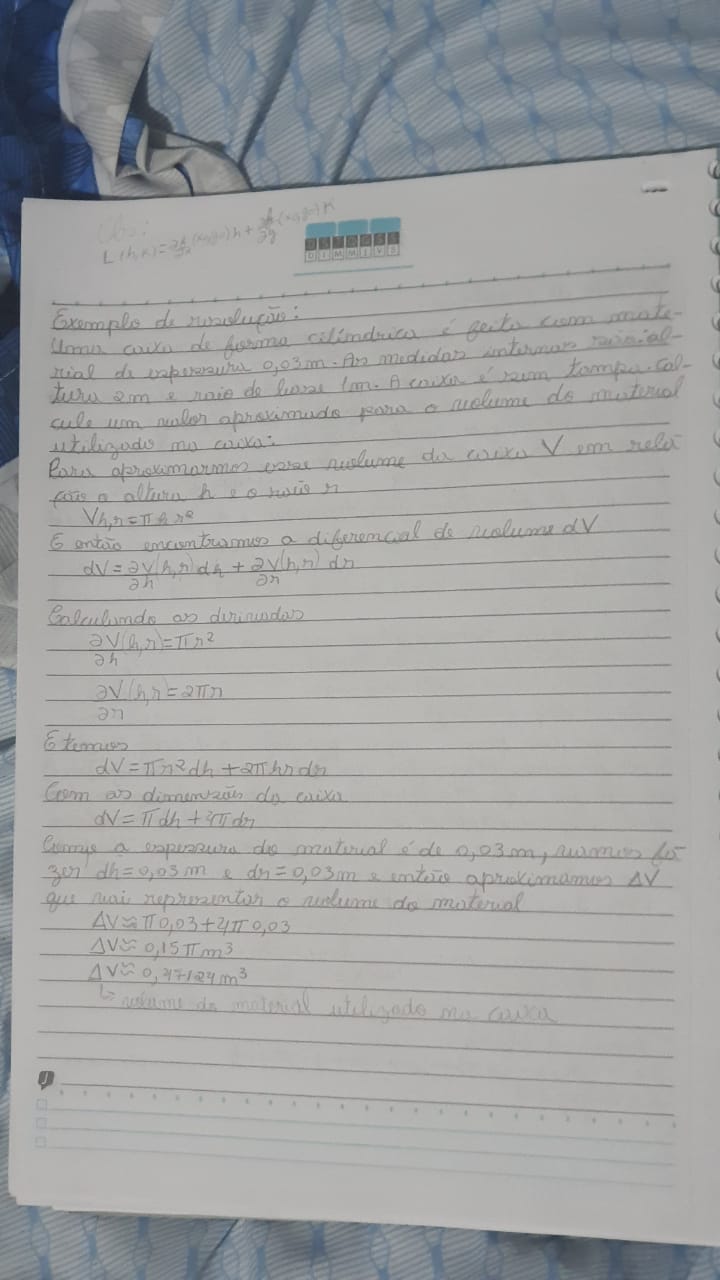 Obs:
L(h,k)=∂f/∂x(x0,y0)h+∂f/∂y(x0,y0)k
Exemplo de resolução:
Uma caixa de forma cilíndrica é feita com mate-
rial de espessura 0,03m. As medidas internas são:al-
tura 2m e raio da base 1m. A caixa é sem tampa. Cal-
cule um valor aproximado para o volume do material
utilizado na caixa:
Para aproximarmos esse volume da caixa V em rela
ção a altura h e o raio r
Vh,r=πhr²
E então encontramos a diferencial de volume dV
dV=∂V/∂h(h,r)dh+∂V/∂r(h,r)dr
Calculando as derivadas
∂V/∂h(h,r)=πr²
∂V/∂r(h,r)=2πr
E temos
dV=πr²dh+2πhrdr
Com as dimensões da caixa
dV=πdh+4πdr
Como a espessura do material é de 0,03m, vamos fa
zer dh=0,03m e dr=0,03m e então aproximamos ΔV
que vai representar o volume do material
ΔV≈π0,03+4π0,03
ΔV≈0,15πm³
ΔV≈0,47124m³
↳volume do material utilizado na caixa